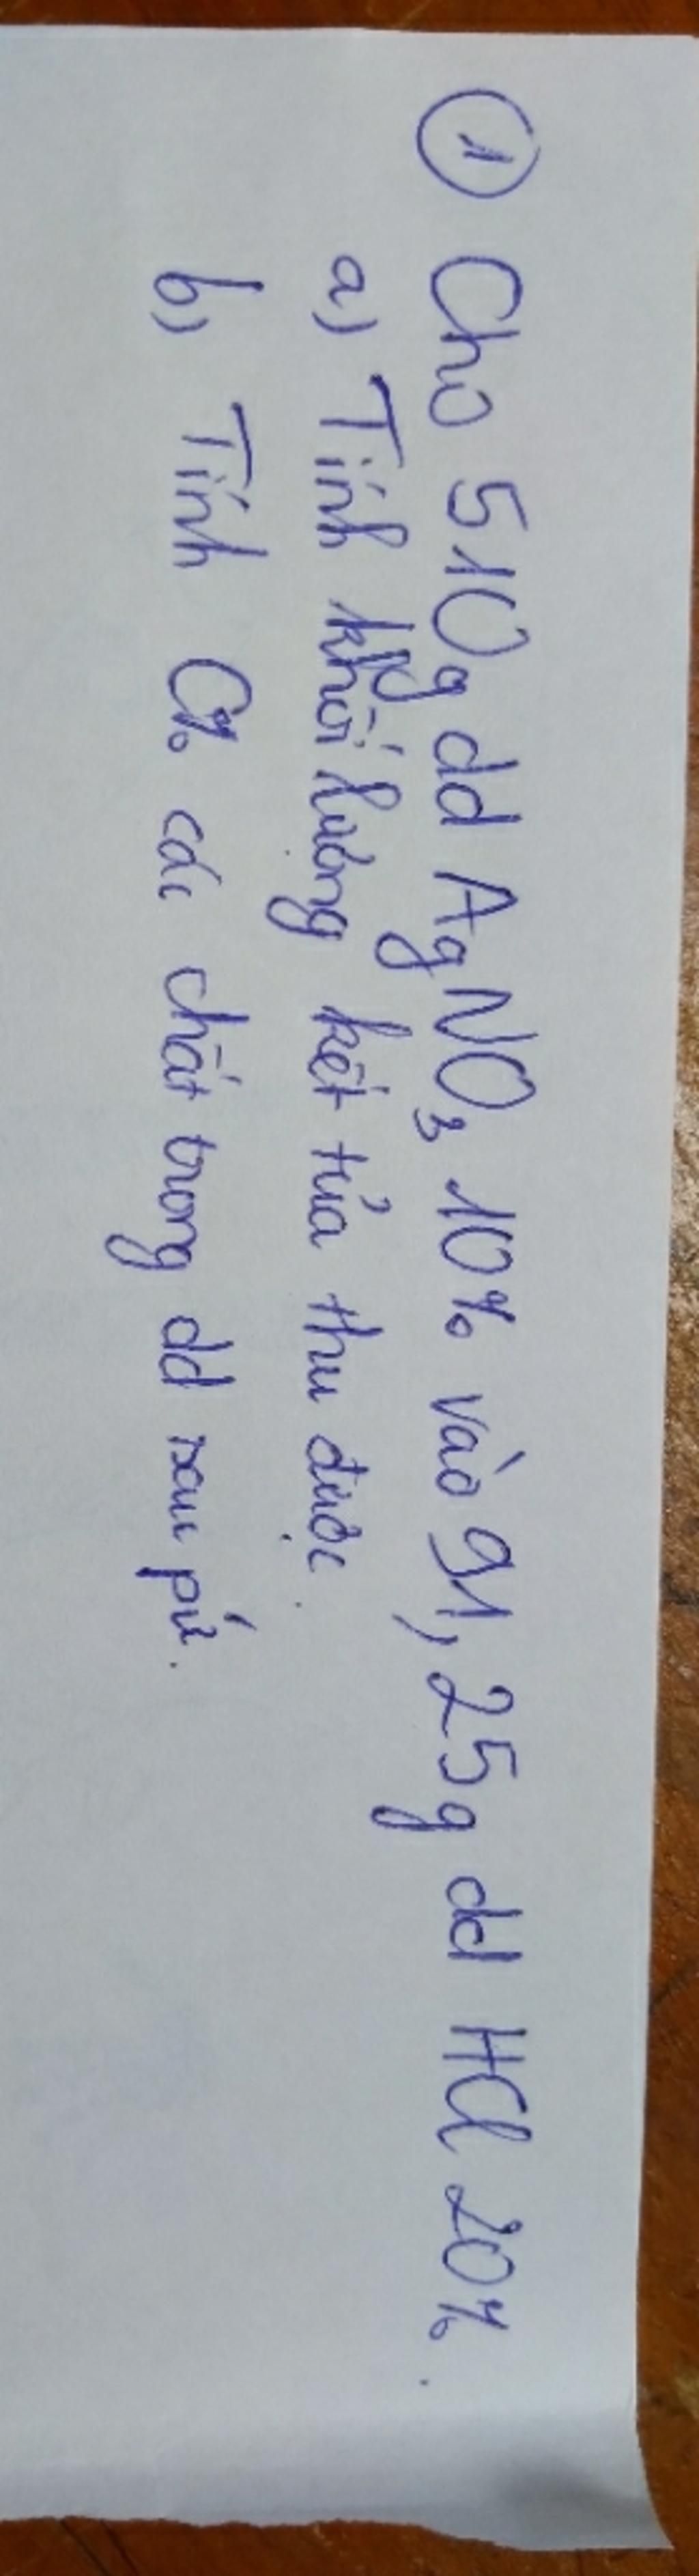 ① Cho 510g dd AgNO₃ 10% vào 91,25g dd HCl 20%.
a) Tính khối lượng kết tủa thu được.
b) Tính C% các chất trong dd sau pứ.